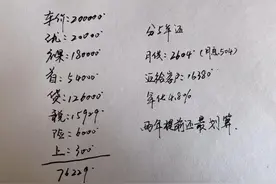 车价:200000
优:20000
保:18000
首:54000
贷:126000
税:15929
险:6000
上:300
76229
分5年还
月供:2604 (月息504)
返给客户:16380
年化4.8%
两年提前还最划算.